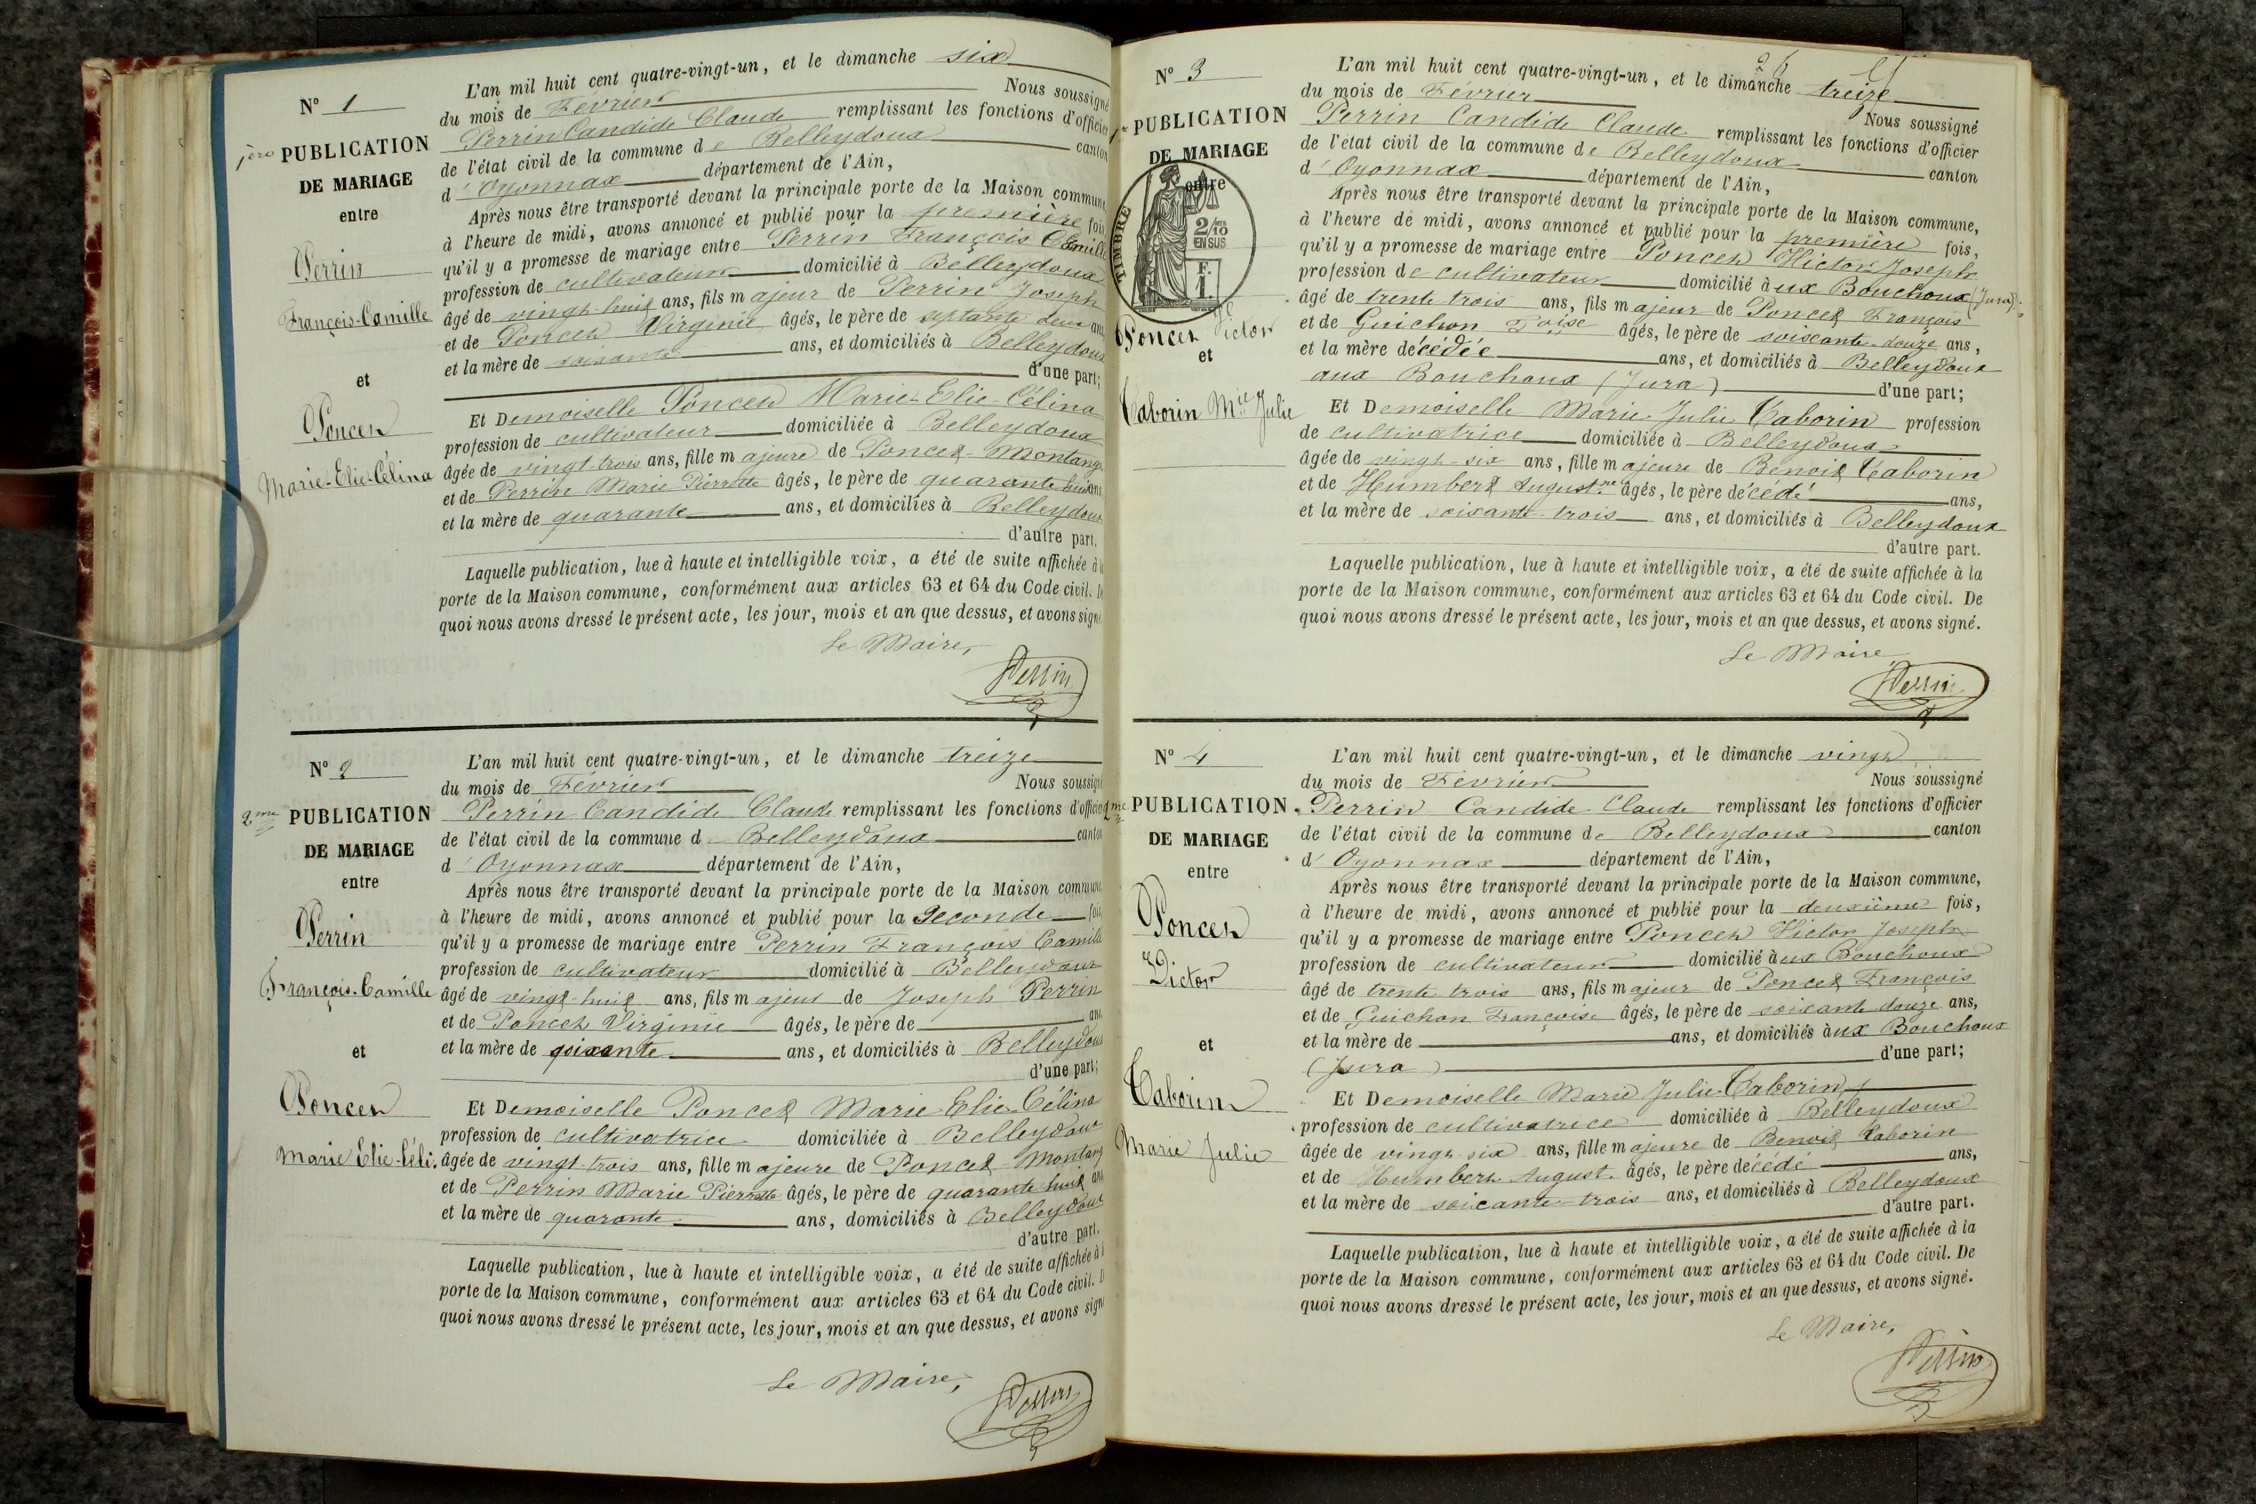 N° 1
1ère PUBLICATION
DE MARIAGE
entre
Perrin
François-Camille
et
Poncet
Marie-Elie-Célina
L'an mil huit cent quatre-vingt-un, et le dimanche six
du mois de Février Nous soussigné
Perrin Candide Claude remplissant les fonctions d'officier
de l'état civil de la commune de Belleydoux canton
d'Oyonnax département de l'Ain,
Après nous être transporté devant la principale porte de la Maison commune
à l'heure de midi, avons annoncé et publié pour la première fois
qu'il y a promesse de mariage entre Perrin François Camille
profession de cultivateur domicilié à Belleydoux
âgé de vingt-huit ans, fils majeur de Perrin Joseph
et de Poncet Virginie âgés, le père de septante deux ans
et la mère de soixante ans, et domiciliés à Belleydoux
d'une part;
Et Demoiselle Poncet Marie-Elie-Célina
profession de cultivateur domiciliée à Belleydoux
âgée de vingt-trois ans, fille majeure de Poncet-Montange
et de Perrin Marie Pierrette âgés, le père de quarante huit ans
et la mère de quarante ans, et domiciliés à Belleydoux
d'autre part.
Laquelle publication, lue à haute et intelligible voix, a été de suite affichée à la
porte de la Maison commune, conformément aux articles 63 et 64 du Code civil. De
quoi nous avons dressé le présent acte, les jour, mois et an que dessus, et avons signé
Le Maire,
Perrin
N° 2
2me PUBLICATION
DE MARIAGE
entre
Perrin
François-Camille
et
Poncet
Marie Elie-Céli.
L'an mil huit cent quatre-vingt-un, et le dimanche treize
du mois de Février Nous soussigné
Perrin Candide Claude remplissant les fonctions d'officier
de l'état civil de la commune d Belleydoux canton
d'Oyonnax département de l'Ain,
Après nous être transporté devant la principale porte de la Maison commune
à l'heure de midi, avons annoncé et publié pour la seconde fois
qu'il y a promesse de mariage entre Perrin François Camille
profession de cultivateur domicilié à Belleydoux
âgé de vingt-huit ans, fils majeur de Joseph Perrin
et de Poncet Virginie âgés, le père de ans
et la mère de soixante ans, et domiciliés à Belleydoux
d'une part;
Et Demoiselle Poncet Marie Elie-Célina
profession de cultivatrice domiciliée à Belleydoux
âgée de vingt-trois ans, fille majeure de Poncet-Montange
et de Perrin Marie Pierrette âgés, le père de quarante-huit ans
et la mère de quarante ans, domiciliés à Belleydoux
d'autre part.
Laquelle publication, lue à haute et intelligible voix, a été de suite affichée à
porte de la Maison commune, conformément aux articles 63 et 64 du Code civil. D
quoi nous avons dressé le présent acte, les jour, mois et an que dessus, et avons signé
Le Maire,
Perrin
26
N° 3
PUBLICATION
DE MARIAGE
entre
TIMBRE
2/10
EN SUS
F.
1.
Poncet Victor
et
Taborin Mie Julie
L'an mil huit cent quatre-vingt-un, et le dimanche treize
du mois de Février Nous soussigné
Perrin Candide Claude remplissant les fonctions d'officier
de l'état civil de la commune de Belleydoux canton
d'Oyonnax département de l'Ain,
Après nous être transporté devant la principale porte de la Maison commune,
à l'heure de midi, avons annoncé et publié pour la première fois,
qu'il y a promesse de mariage entre Poncet Victor Joseph
profession de cultivateur domicilié aux Bouchoux (Jura)
âgé de trente trois ans, fils majeur de Poncet François
et de Guichon Fçoise âgés, le père de soixante-douze ans,
et la mère décédée ans, et domiciliés à Belleydoux
aux Bouchoux (Jura) d'une part;
Et Demoiselle Marie-Julie Taborin profession
de cultivatrice domiciliée à Belleydoux
âgée de vingt-six ans, fille majeure de Benoit Taborin
et de Humbert Augustne âgés, le père décédé ans,
et la mère de soixante-trois ans, et domiciliés à Belleydoux
d'autre part.
Laquelle publication, lue à haute et intelligible voix, a été de suite affichée à la
porte de la Maison commune, conformément aux articles 63 et 64 du Code civil. De
quoi nous avons dressé le présent acte, les jour, mois et an que dessus, et avons signé.
Le Maire
Perrin
N° 4
2me PUBLICATION
DE MARIAGE
entre
Poncet
Victor
et
Taborin
Marie Julie
L'an mil huit cent quatre-vingt-un, et le dimanche vingt
du mois de Février Nous soussigné
Perrin Candide Claude remplissant les fonctions d'officier
de l'état civil de la commune de Belleydoux canton
d'Oyonnax département de l'Ain,
Après nous être transporté devant la principale porte de la Maison commune,
à l'heure de midi, avons annoncé et publié pour la deuxième fois,
qu'il y a promesse de mariage entre Poncet Victor Joseph
profession de cultivateur domicilié aux Bouchoux
âgé de trente trois ans, fils majeur de Poncet François
et de Guichon Françoise âgés, le père de soixante douze ans,
et la mère de ans, et domiciliés aux Bouchoux
(Jura) d'une part;
Et Demoiselle Marie Julie-Taborin
profession de cultivatrice domiciliée à Belleydoux
âgée de vingt-six ans, fille majeure de Benoit Taborin
et de Humbert August. âgés, le père décédé ans,
et la mère de soixante-trois ans, et domiciliés à Belleydoux
d'autre part.
Laquelle publication, lue à haute et intelligible voix, a été de suite affichée à la
porte de la Maison commune, conformément aux articles 63 et 64 du Code civil. De
quoi nous avons dressé le présent acte, les jour, mois et an que dessus, et avons signé.
Le Maire,
Perrin